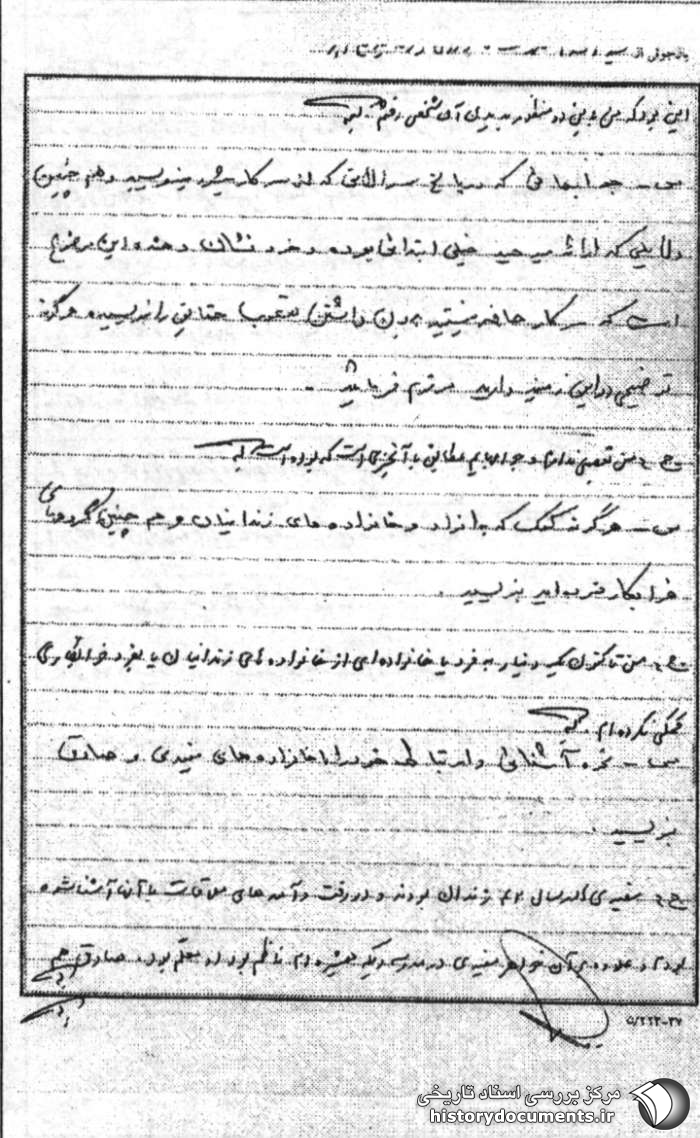 بازجوئی از
این بود که من باین دو منظور به دیدن آن شخص رفتم.
س - جوابهائی که در پاسخ سوالاتی که از سرکار میشود مینویسید و هم چنین
دلایلی که ارائه میدهید خیلی ابتدائی بوده و خود نشان دهنده این موضوع
است که سرکار حاضر نیستید بدون داشتن تعصب حقایق را بنویسید هرگونه
توضیحی در این زمینه دارید مرقوم فرمائید.
ج: من تعصبی ندارم و جوابهایم مطابق با آنچیزی است که بوده است
س - هرگونه کمک که به افراد و خانواده های زندانیان و هم چنین گروههای
خرابکار نموده اید بنویسید.
ج: من تا کنون یک دینار به فرد یا خانواده ای از خانواده های زندانیان یا بفرد خرابکاری
کمکی نکرده ام.
س - نحوه آشنائی و ارتباط خود را با خانواده های مفیدی و صادق
بنویسید.
ج: مفیدی ها در سال ۴۲ زندان بودند و در رفت و آمد های ملاقات با آنان آشنا شده
بودم و علاوه بر آن خواهر مفیدی در مدرسه ایکه همشیره ام ناظم بود او معلم بود. صادق هم
۵/۲۲۲-۳۷
مرکز بررسی اسناد تاریخی
historydocuments.ir